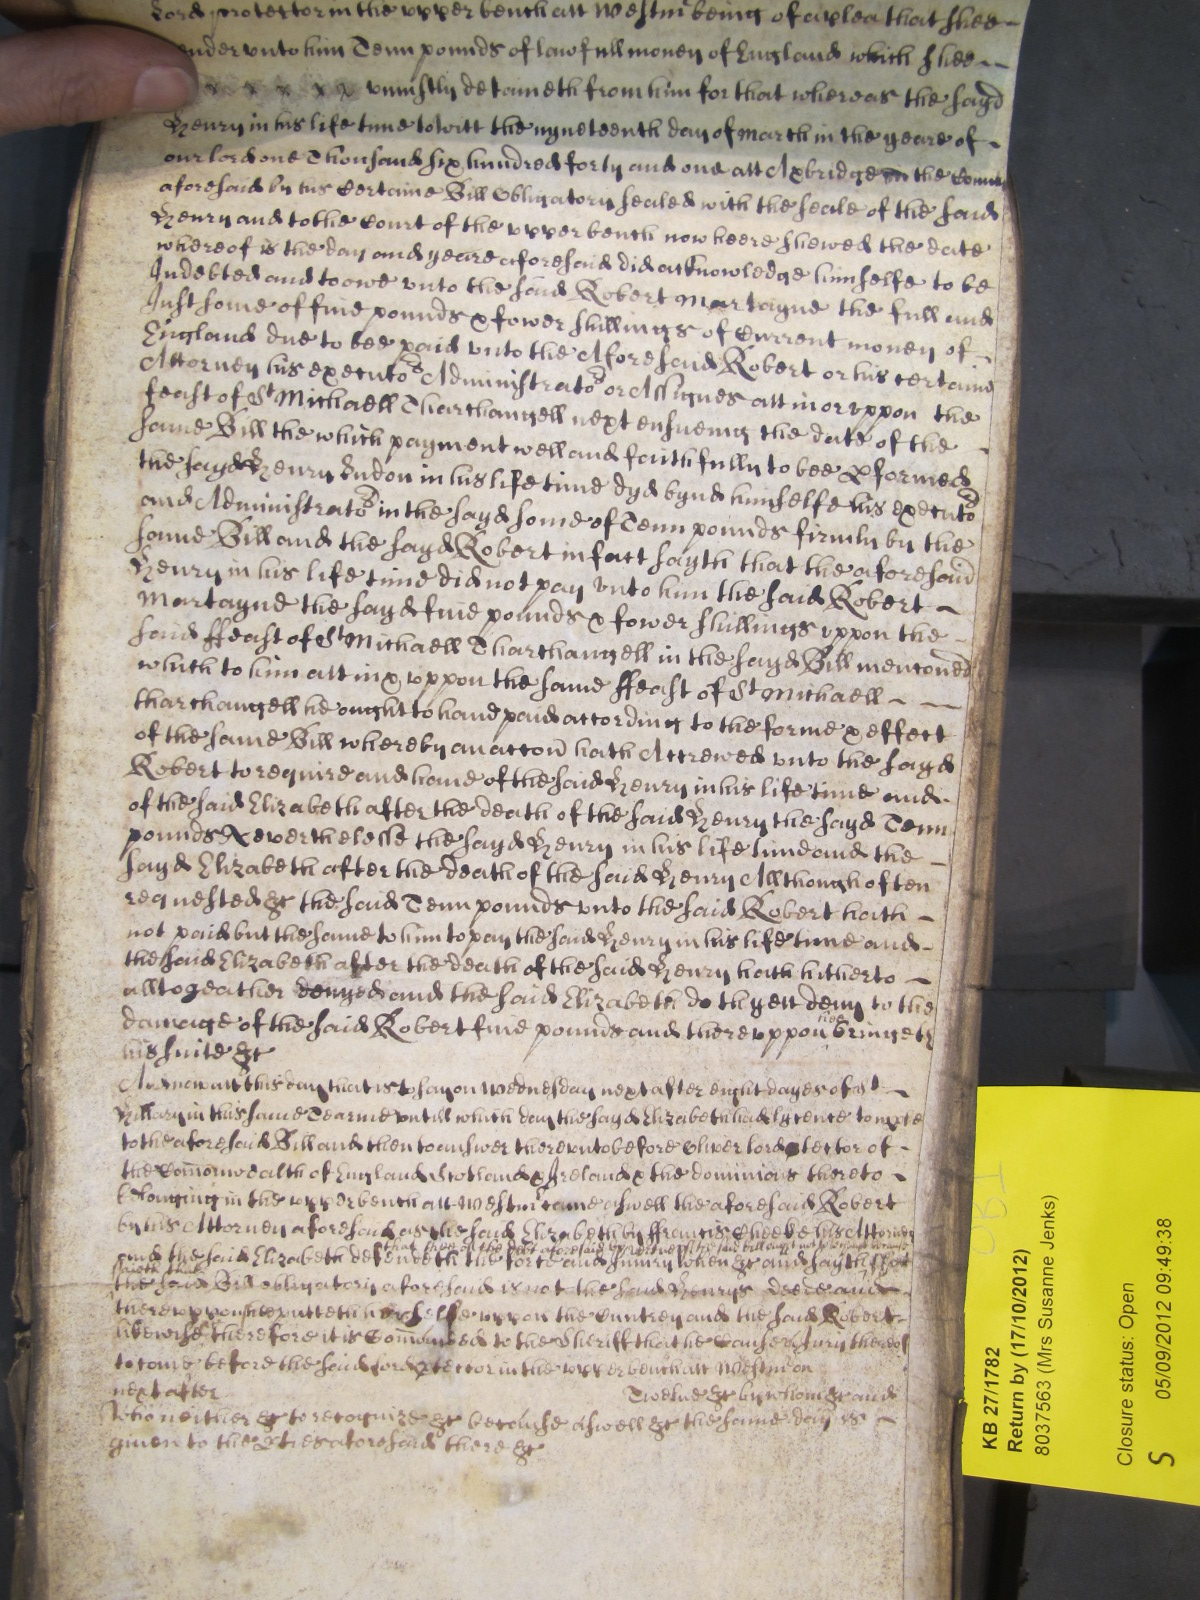 Lord protector in the upper bench att Westmr being of a plea that shee
render unto him Tenn pounds of lawfull money of England which shee
uniustly detaineth from him for that whereas the sayd
Henry in his life time to witt the nyneteenth day of March in the yeare of
our lord one Thousand six hundred forty and one att Axbridge in the County
aforesaid by his certaine Bill Obligatory sealed with the seale of the said
Henry and to the Court of the upper bench now heere shewed the date
whereof is the day and yeare aforesaid did acknowledge himselfe to be
Indebted and to owe unto the said Robert Martayne the full and
Just some of five pounds & fower shillings of Current money of
England due to bee paid unto the Aforesaid Robert or his certaine
Attorney his executors Administrators or Assignes att in or uppon the
feast of St Michaell Tharchangell next ensueing the date of the
same Bill the which payment well and faithfully to bee pformed
the sayd Henry in his life time dyd bynd himselfe his executors
and Administrators in the sayd some of Tenn pounds firmly by the
same Bill and the sayd Robert in fact sayth that the aforesaid
Henry in his life time did not pay unto him the said Robert
Martayne the sayd five pounds & fower shillings uppon the
said ffeast of St Michaell Tharchangell in the sayd Bill menconed
which to him att in & uppon the same ffeast of St Michaell
tharchangell he ought to have paid according to the forme & effect
of the same Bill whereby an accon hath Accrewed unto the sayd
Robert to require and have of the said Henry in his life time and
of the said Elizabeth after the death of the said Henry the sayd Tenn
pounds Neverthelesse the sayd Henry in his life time and the
sayd Elizabeth after the death of the said Henry Allthough often
requested &c the said Tenn pounds unto the said Robert hath
not paid but the same to him to pay the said Henry in his life time and
the said Elizabeth after the death of the said Henry hath hitherto
alltogeather denyed and the said Elizabeth doth yett deny to the
damage of the said Robert five pounds and thereuppon hee bringeth
his suite &c
And now att this day that is to say on Wednesday next after eight dayes of St
Hillary in this same Tearme untill which day the sayd Elizabeth had lycence to
to the aforesaid Bill and then to answer thereunto before Oliver lord ptector of
the Comonwealth of England Scotland & Ireland & the dominions thereto
belonging in the upper bench att Westmr came aswell the aforesaid Robert
by his Attorney aforesaid as the said Elizabeth by ffrancis Cheeke his Attorney
and the said Elizabeth defendeth the force and Iniury when &c and sayth
the said Bill obligatory aforesaid is not the said Henrys deede and
thereuppon shee putteth herselfe uppon the Cuntrey and the said Robert
likewise therefore it is Comanded to the Sheriff that he cause a Jury thereof
to come before the said lord ptector in the upper bench att Westmr on
next after Twelve &c by whom &c and
who neither &c to recognize &c because aswell &c the same day is
given to the pties aforesaid there &c
KB 27/1782
Return by (17/10/2012)
8037563 (Mrs Susanne Jenks)
Closure status: Open
05/09/2012 09:49:38
S